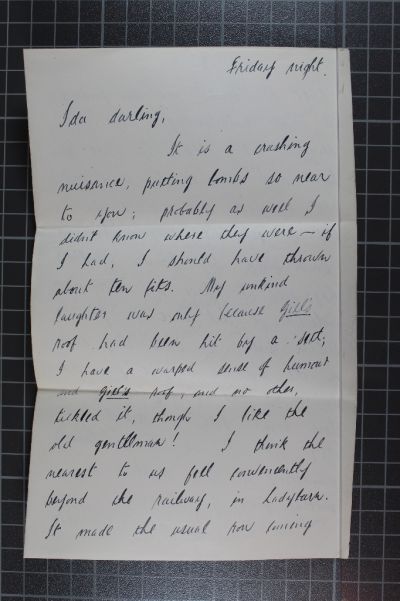 Friday night.
Ida darling,
It is a crashing
nuisance, putting bombs so near
to you; probably as well I
didn't know where they were — if
I had, I should have thrown
about ten fits. My unkind
laughter was only because Giel's
roof had been hit by a
I have a warped sense of humour
and Giel's roof, and no other,
tickled it, though I like the
old gentleman! I think the
nearest to us fell conveniently
beyond the railway, in
It made the usual row coming